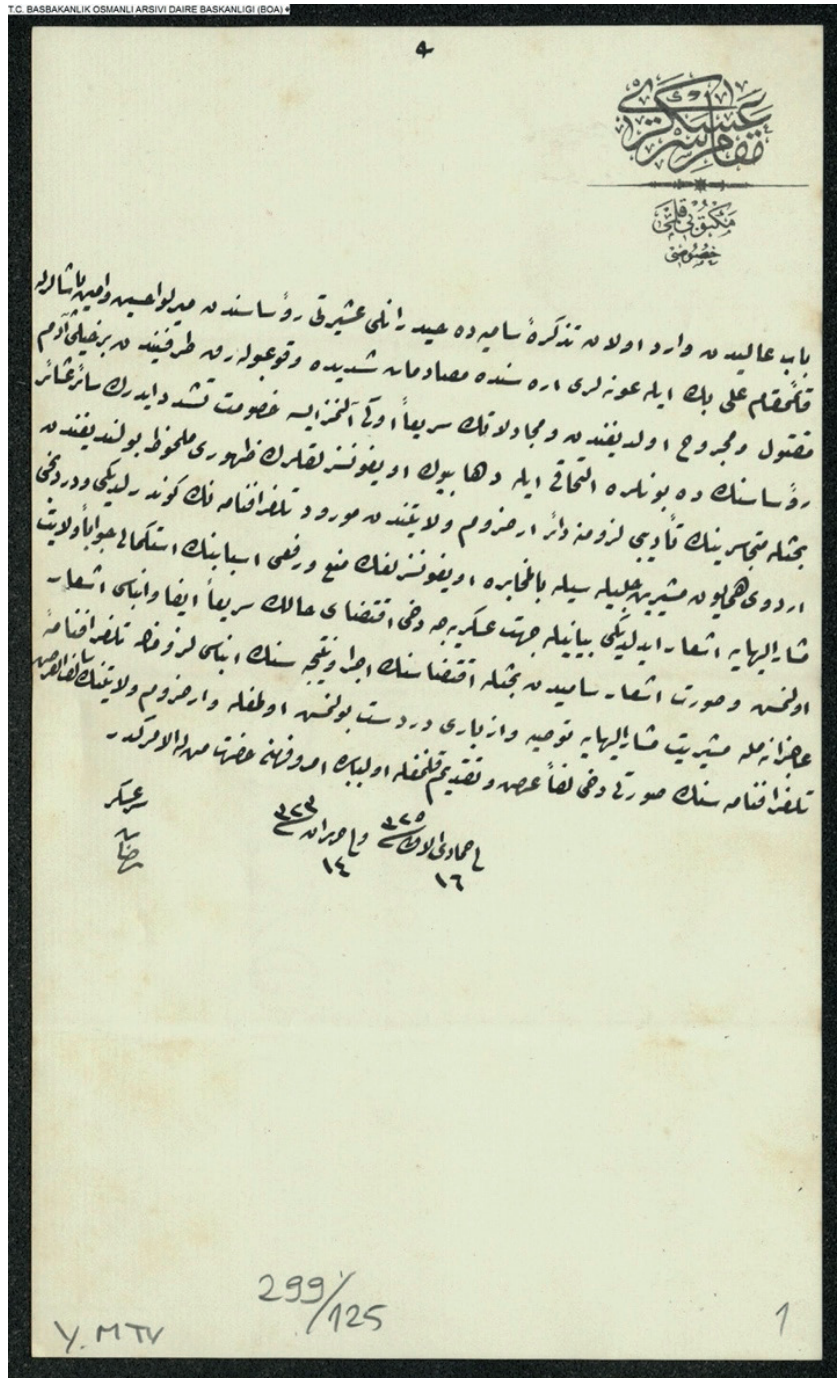 T.C. BASBAKANLIK OSMANLI ARSIVI DAIRE BASKANLIGI (BOA)
مقام سر عسكرى
مكتوبى قلمى
خصوصى
باب عاليدن وارد اولان تذكرۀ ساميه ده حيدرانلى عشيرتى رؤساسندن ميرلوا حسين وامين پاشالرله
قائممقام على بك ايله عونه لرى اره سنده مصادمات شديده وقوعبوله رق طرفيندن برخيلى آدم
مقتول ومجروح اولديغندن ومجادلاتك سريعاً اوكى آلنمز ايسه خصومت تشدد ايدرك سائر عشائر
رؤساسنك ده بونلره التحاقى ايله دها بيوك اويغونسزلقلرك ظهورى ملحوظ بولنديغندن
بحثله متجاسرينك تأديبى لزومنه دائر ارضروم ولايتندن مورود تلغرافنامه نك كوندرلديكى ودردنجى
اردوى همايون مشيريت جليله سيله بالمخابره اويغونسزلغك منع ورفعى اسبابنك استكمالى جواباً ولايت
مشاراليهايه اشعار ايدلديكى بيانيله جهت عسكريه جه دخى اقتضاى حالك سريعاً ايفا وانباسى اشعار
اولنمش وصورت اشعار ساميدن بحثله اقتضاسنك اجرا ونتيجه سنك انباسى لزومى تلغرافنامۀ
عاجزانه مله مشيريت مشاراليهايه توصيه وازبارى دردست بولنمش اولمغله وارضروم ولايتنك
تلغرافنامه سنك صورتى دخى لفاً عرض وتقديم قلنمغله اولبابده امر وفرمان حضرت من له الامركدر
فى ١٦ جمادى الاول ٣٢٥ وفى ١٤ حزيران ٣٢٣
سر عسكر
رضا
299/125
Y. MTV
1